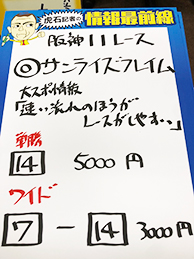 虎石記者の
情報最前線
阪神11レース
◎サンライズフレイム
大スポ情報
「速い流れのほうが
レースがしやすい」
単勝
14 5000円
ワイド
7-14 3000円